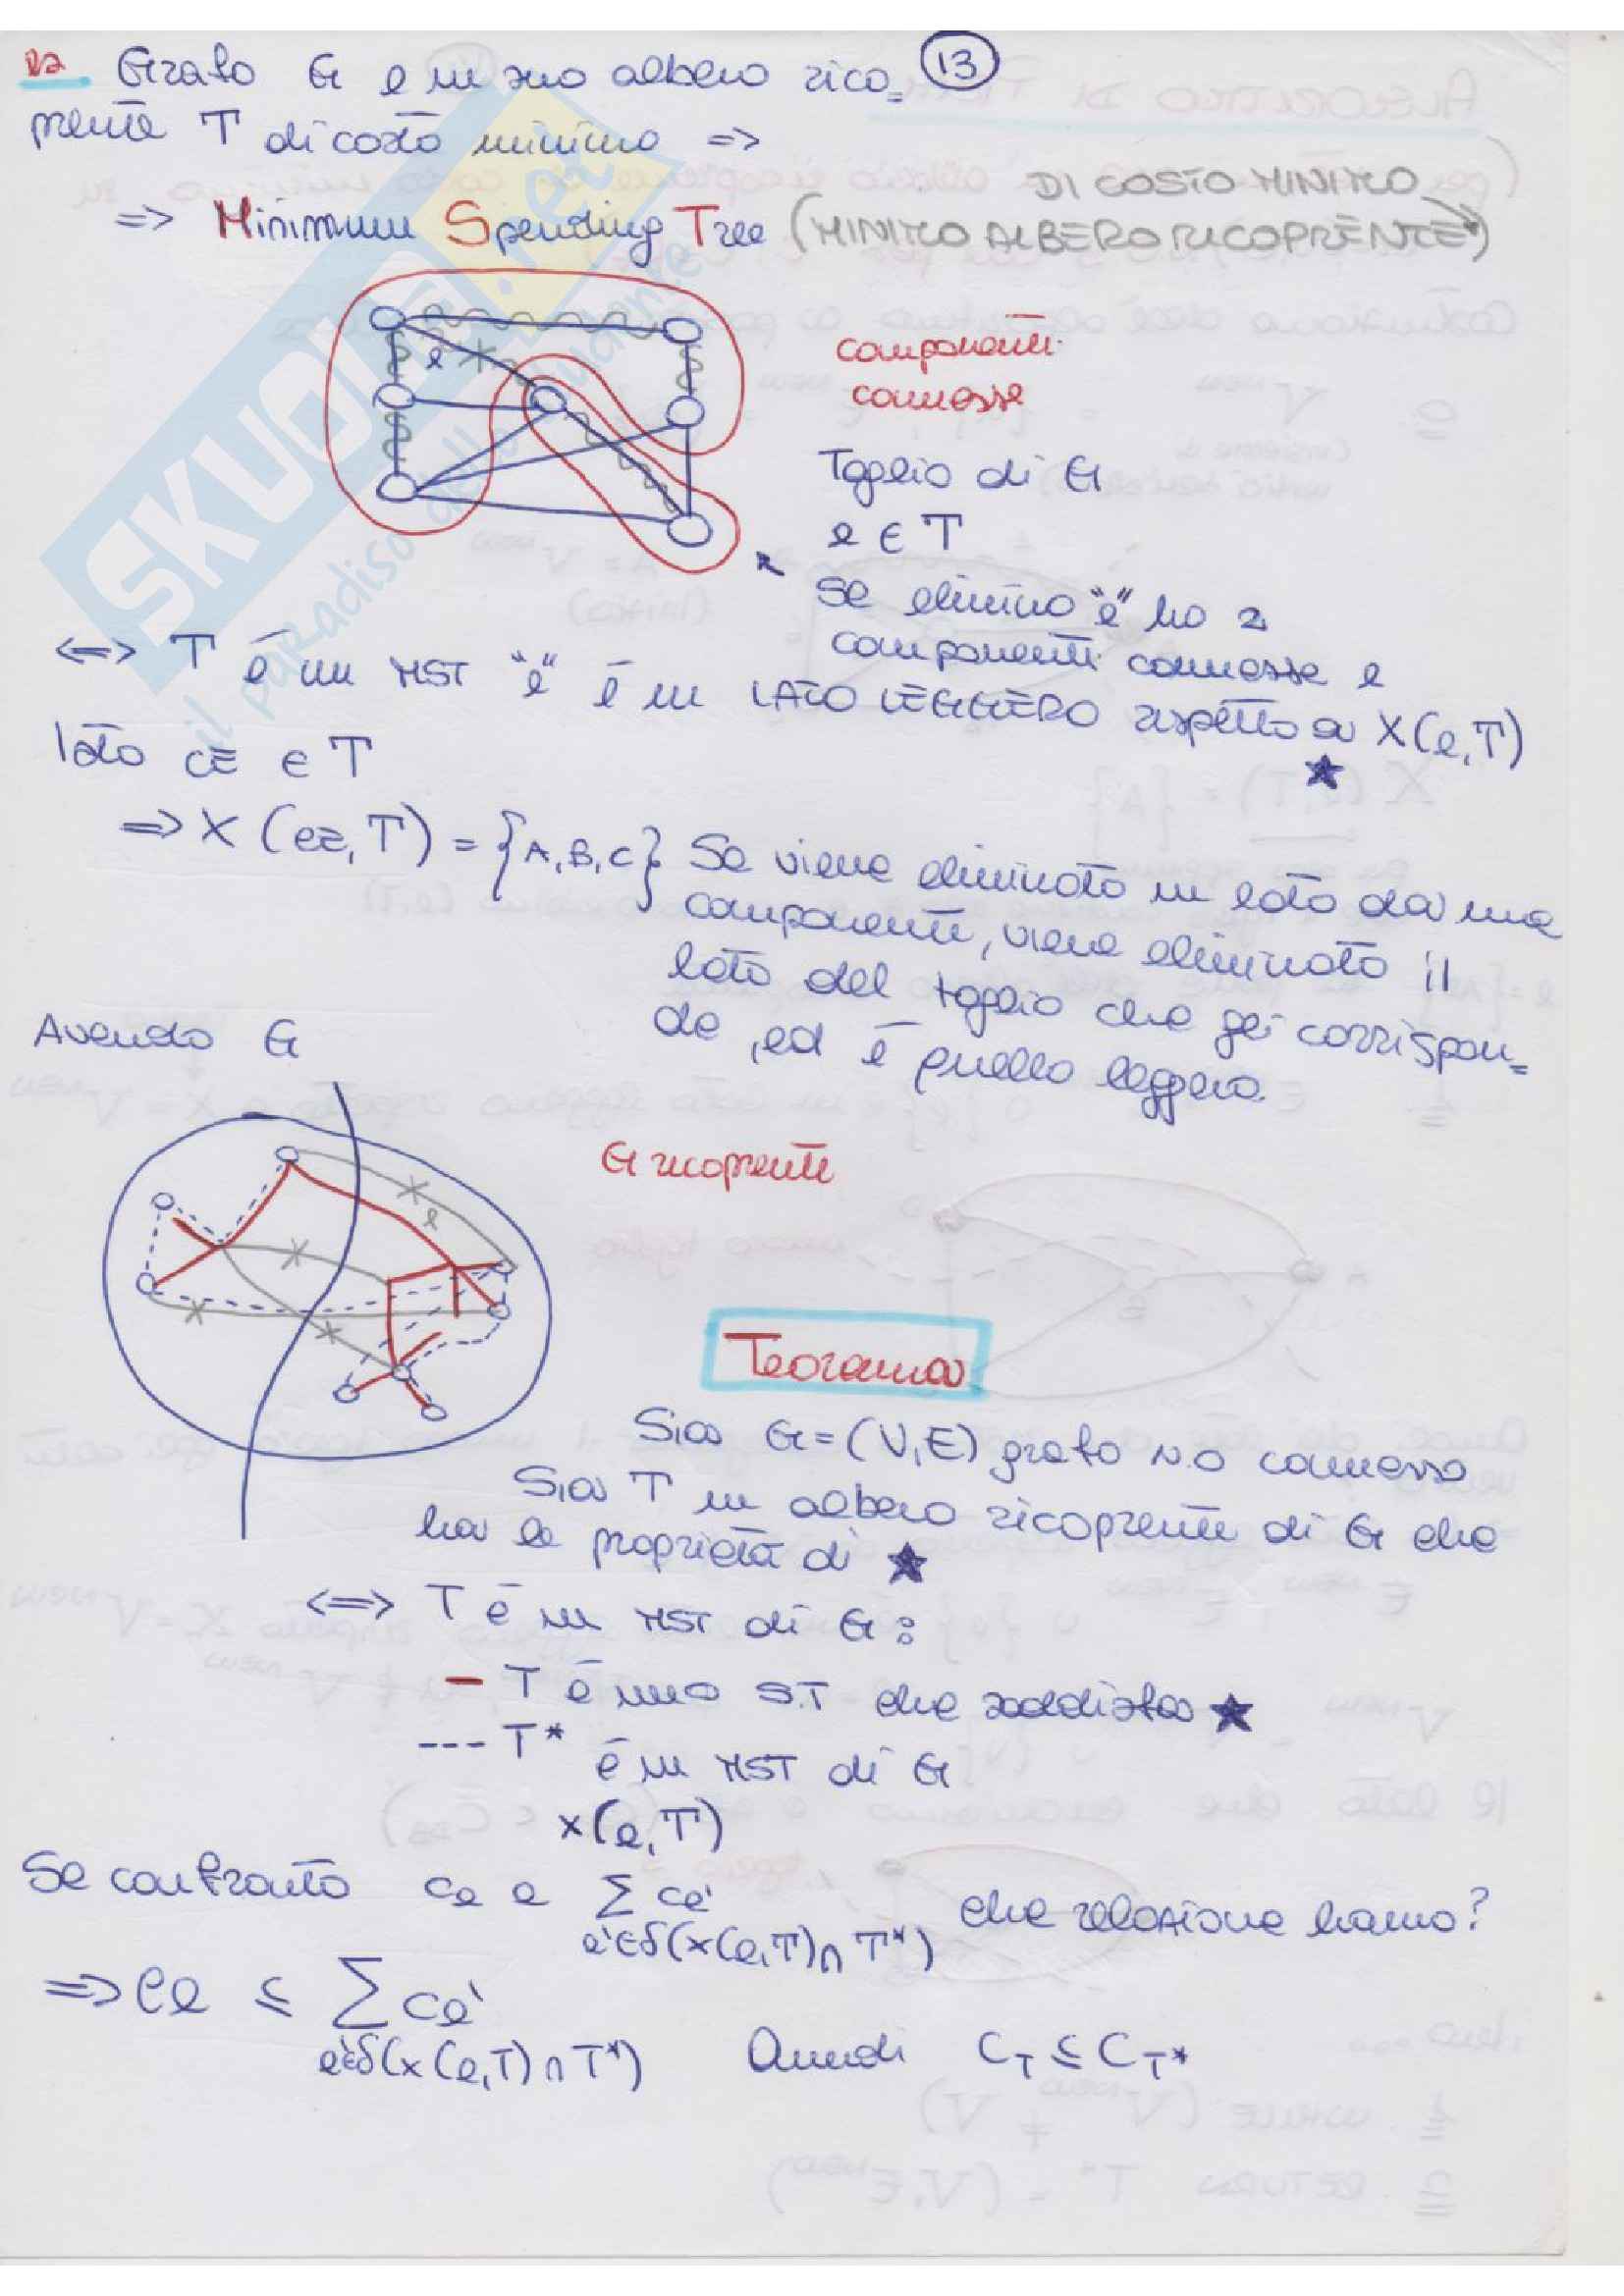 Grafo G e un suo albero rico= 13
prente T di costo minimo =>
DI COSTO MINIMO
=> Minimum Spending Tree (MINIMO ALBERO RICOPRENTE)
componenti
connesse
e
Taglio di G
e ∈ T
Se elimino "e" ho 2
componenti connesse e
<=> T è un MST "e" è un LATO LEGGERO rispetto a X(e,T) ★
lato CE ∈ T
=> X (CE, T) = {A, B, C} Se viene eliminato un lato da una
componente, viene eliminato il
lato del taglio che gli corrispon=
de, ed è quello leggero.
Avendo G
G ricoprente
e
Teorema
Sia G=(V,E) grafo N.O connesso
Sia T un albero ricoprente di G che
ha la proprietà di ★
<=> T è un MST di G:
— T è uno S.T che soddisfa ★
--- T* è un MST di G
x(e,T)
Se confronto ce e Σ ce'
e'∈δ(x(e,T)∩T*) che relazione hanno?
=> ce ≤ Σ ce'
e'∈δ(x(e,T)∩T*) Quindi CT ≤ CT*
SKUOLA.net
il paradiso dello studente